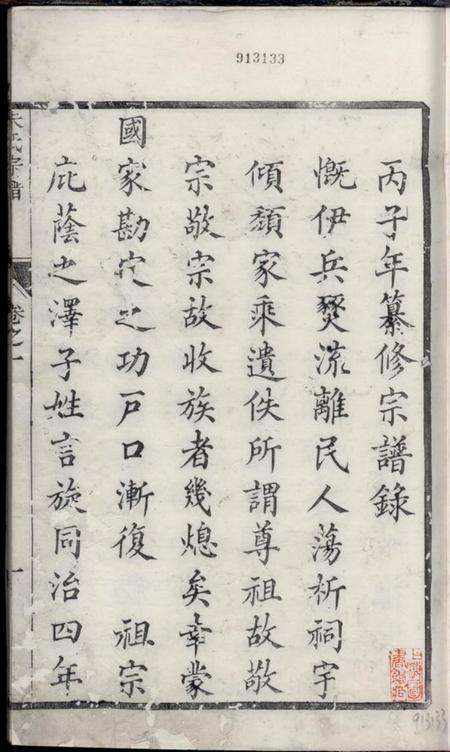 913133
丙子年纂修宗譜錄
慨伊兵燹流離民人蕩析祠宇
傾頹家乘遺佚所謂尊祖故敬
宗敬宗故收族者幾熄矣幸蒙
國家勘定之功戶口漸復 祖宗
庇蔭之澤子姓言旋同治四年
氏宗譜
卷之一
一
913133